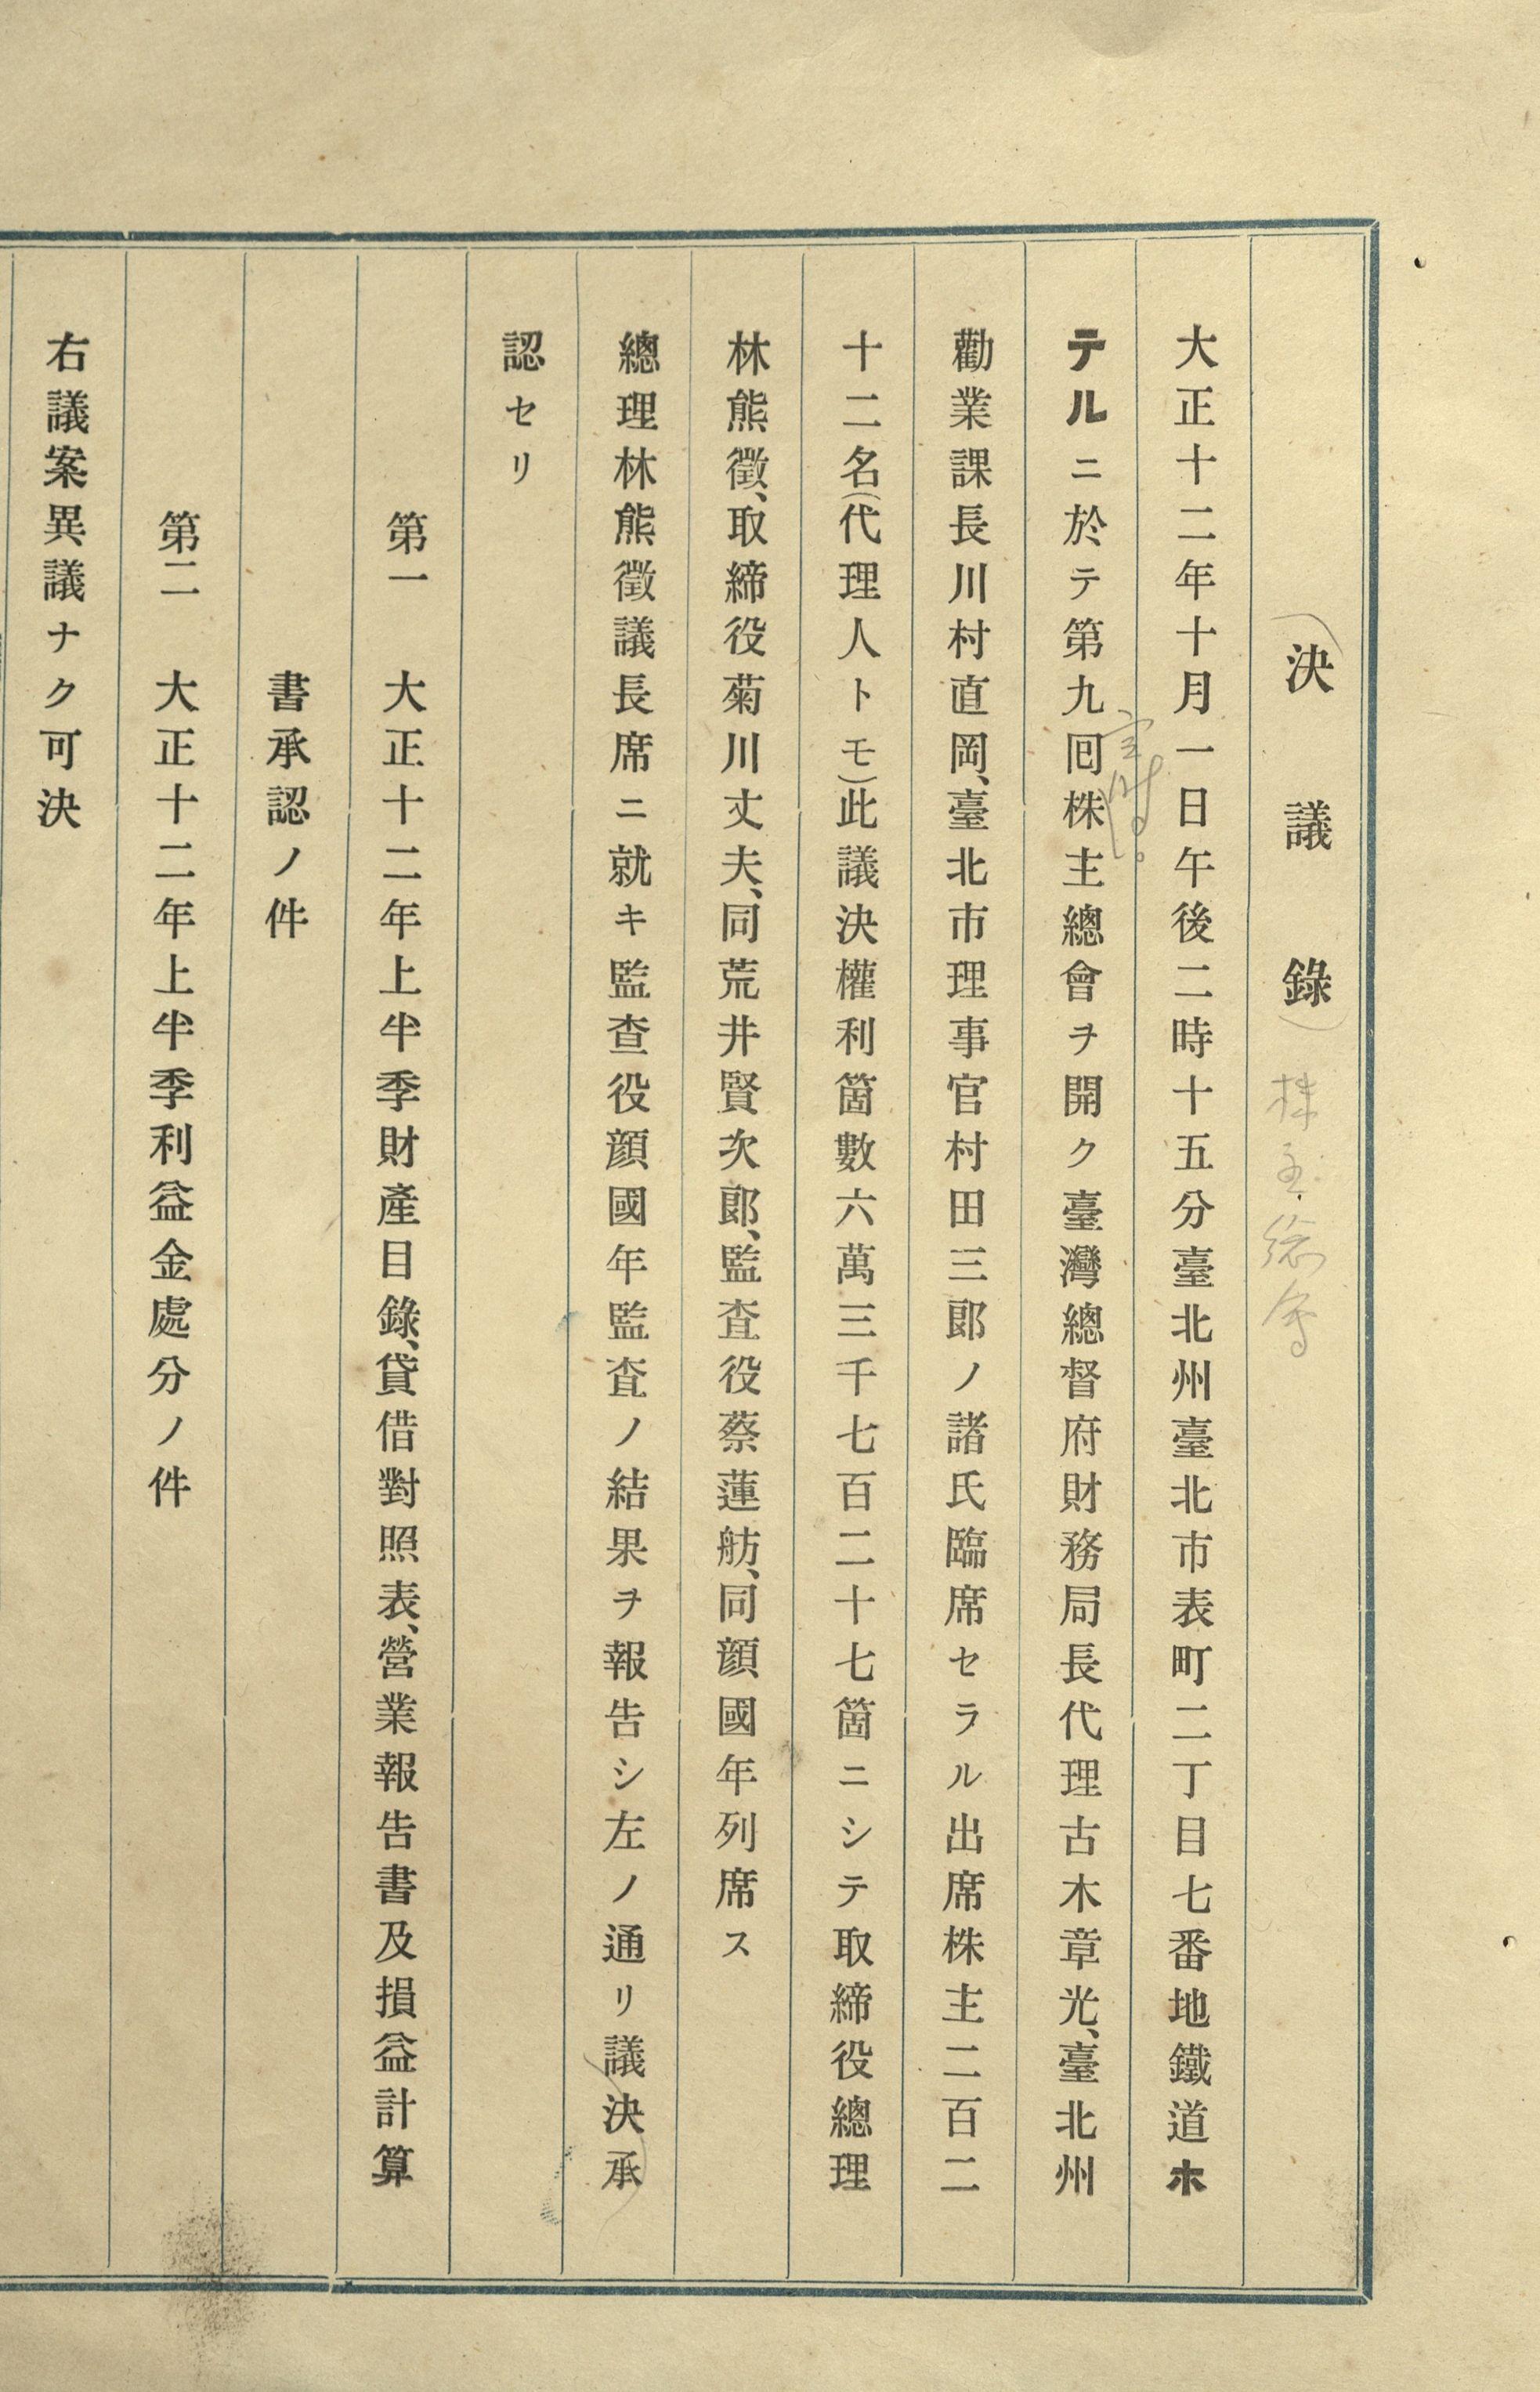 決議錄
株主總會
大正十二年十月一日午後二時十五分臺北州臺北市表町二丁目七番地鐵道ホ
テルニ於テ第九囘株主總會ヲ開ク臺灣總督府財務局長代理古木章光、臺北州
勸業課長川村直岡、臺北市理事官村田三郎ノ諸氏臨席セラル出席株主二百二
十二名(代理人トモ)此議決權利箇數六萬三千七百二十七箇ニシテ取締役總理
林熊徵、取締役菊川丈夫、同荒井賢次郎、監査役蔡蓮舫、同顔國年列席ス
總理林熊徵議長席ニ就キ監查役顔國年監査ノ結果ヲ報告シ左ノ通リ議決承
認セリ
第一　大正十二年上半季財產目錄、貸借對照表、營業報告書及損益計算
書承認ノ件
第二　大正十二年上半季利益金處分ノ件
右議案異議ナク可決